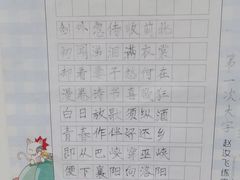 剑外忽传收蓟北
初闻涕泪满衣裳
却看妻子愁何在
漫卷诗书喜欲狂
白日放歌须纵酒
青春作伴好还乡
即从巴峡穿巫峡
便下襄阳向洛阳
第一次大字
赵汝飞练